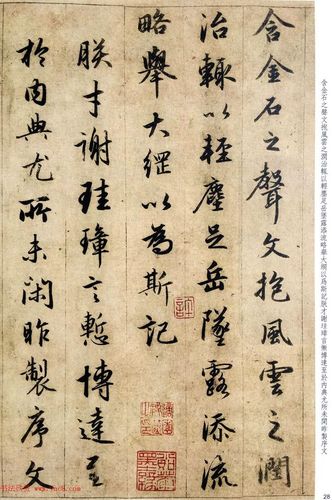 含金石之聲文抱風雲之潤
治輙以輕塵足岳墜露添流
略舉大綱以為斯記
朕才謝珪璋言慙博達至
於內典尤所未閑昨製序文
含金石之聲文抱風雲之潤治輙以輕塵足岳墜露添流略舉大綱以爲斯記朕才謝珪璋言慚博達至於內典尤所未閑昨製序文
28